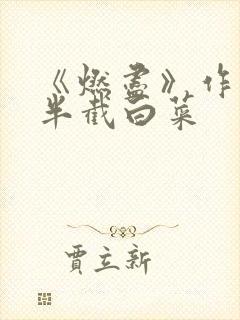 《燃尽》作
半截白菜
贾立新